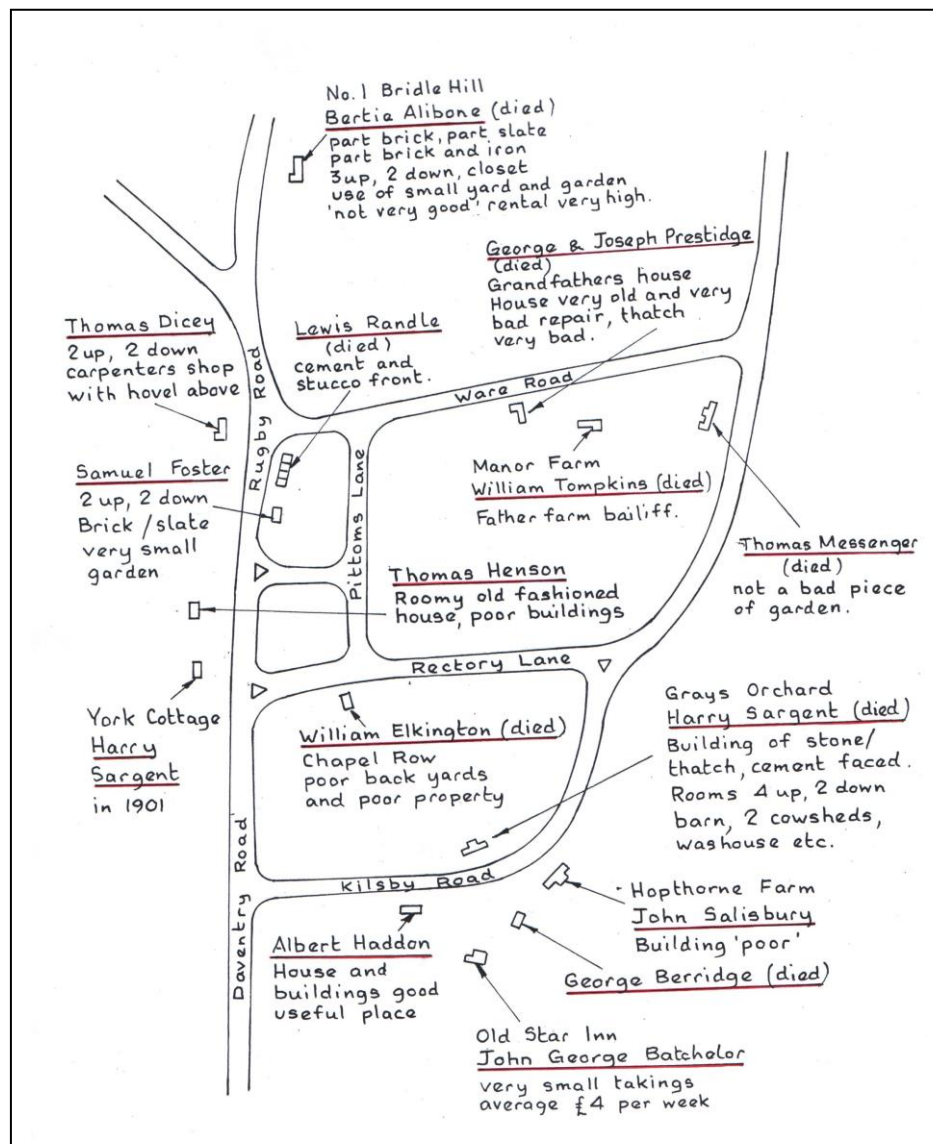 No. 1 Bridle Hill
Bertie Alibone (died)
part brick, part slate
part brick and iron
3up, 2 down, closet
use of small yard and garden
'not very good' rental very high.
George & Joseph Prestidge
(died)
Grandfathers house
House very old and very
bad repair, thatch
very bad.
Thomas Dicey
2 up, 2 down
carpenters shop
with hovel above
Lewis Randle
(died)
cement and
stucco front.
Rugby Road
Ware Road
Samuel Foster
2 up, 2 down
Brick / slate
very small
garden
Pittoms Lane
Manor Farm
William Tompkins (died)
Father farm bailiff.
Thomas Messenger
(died)
not a bad piece
of garden.
Thomas Henson
Roomy old fashioned
house, poor buildings
Rectory Lane
York Cottage
Harry
Sargent
in 1901
William Elkington (died)
Chapel Row
poor back yards
and poor property
Grays Orchard
Harry Sargent (died)
Building of stone/
thatch, cement faced.
Rooms 4 up, 2 down
barn, 2 cowsheds,
washouse etc.
Daventry Road
Kilsby Road
Hopthorne Farm
John Salisbury
Building 'poor'
Albert Haddon
House and
buildings good
useful place
George Berridge (died)
Old Star Inn
John George Batchelor
very small takings
average £4 per week